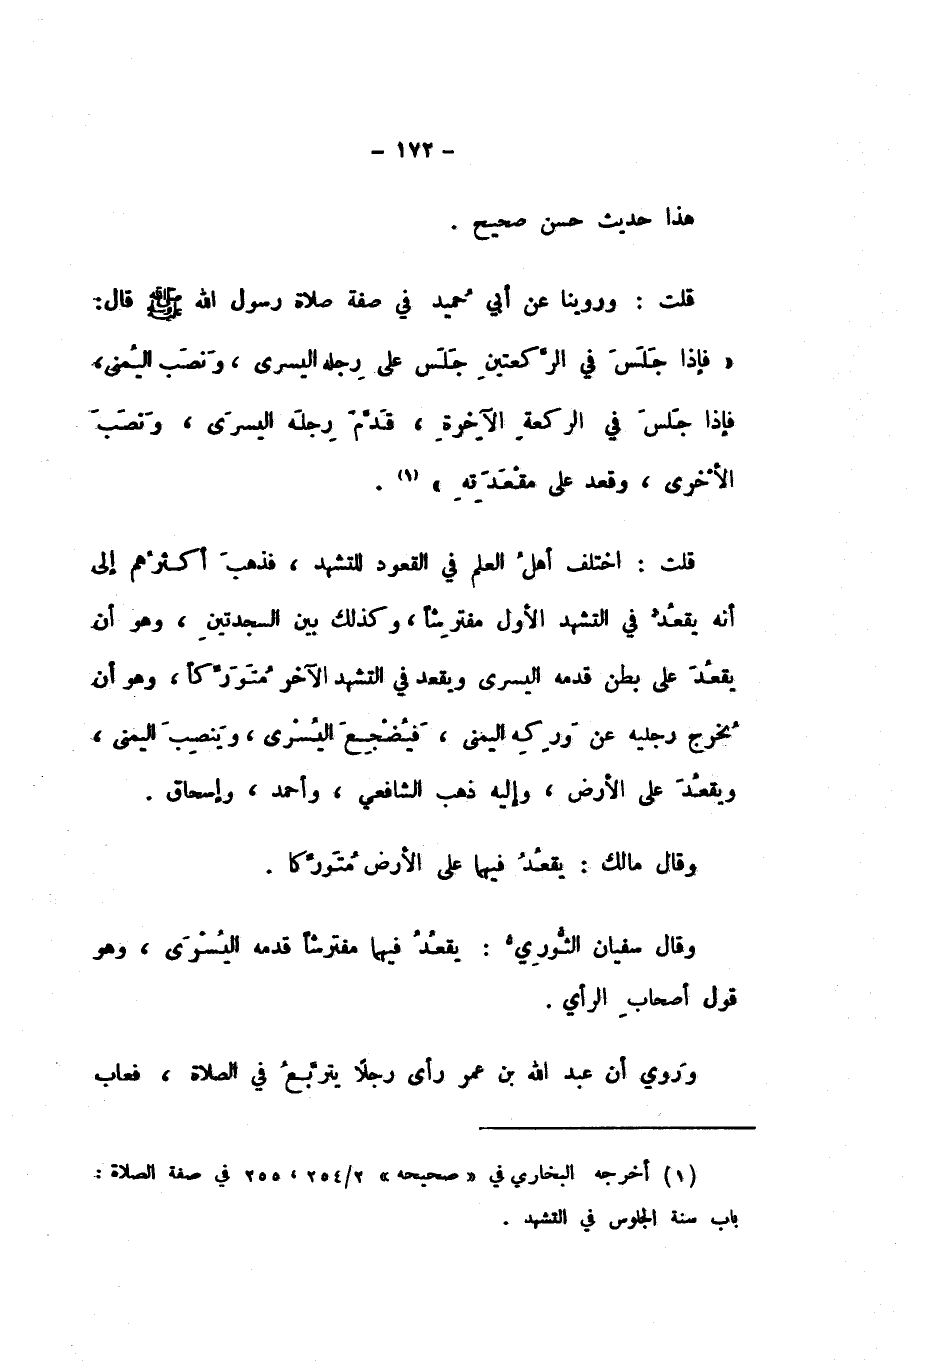 - ١٧٢ -
هذا حديث حسن صحيح .
قلت : وروينا عن أبي حُميد في صفة صلاة رسول الله ﷺ قال:
« فإذا جَلَسَ في الرَّكعتينِ جَلَس على رِجله اليسرى ، ونَصَب اليُمنى،
فإذا جَلسَ في الركعةِ الآخِرةِ ، قَدَّمَ رِجلَه اليسرَى ، ونَصَبَ
الأُخرى ، وقعد على مقْعَدَتِهِ » (١) .
قلت : اختلف أهلُ العلم في القعود للتشهد ، فذهبَ أكثرُهم إلى
أنه يقعُدُ في التشهد الأول مفترِشاً ، وكذلك بين السجدتينِ ، وهو أن
يقعُدَ على بطن قدمه اليسرى ويقعد في التشهد الآخر مُتَوَرِّكاً ، وهو أن
يُخرج رجليه عن وَرِكِه اليمنى ، فَيُضْجِعَ اليُسْرى ، ويَنصِبَ اليمنى ،
ويقعُدَ على الأرض ، وإليه ذهب الشافعي ، وأحمد ، وإسحاق .
وقال مالك : يقعُدُ فيها على الأرض مُتَورِّكا .
وقال سفيان الثَّورِيُّ : يقعُدُ فيها مفترشاً قدمه اليُسْرَى ، وهو
قول أصحابِ الرأي .
ورُوي أن عبد الله بن عمر رأى رجلًا يتربَّعُ في الصلاة ، فعاب
(١) أخرجه البخاري في « صحيحه » ٢٥٤/٢ ، ٢٥٥ في صفة الصلاة :
باب سنة الجلوس في التشهد .